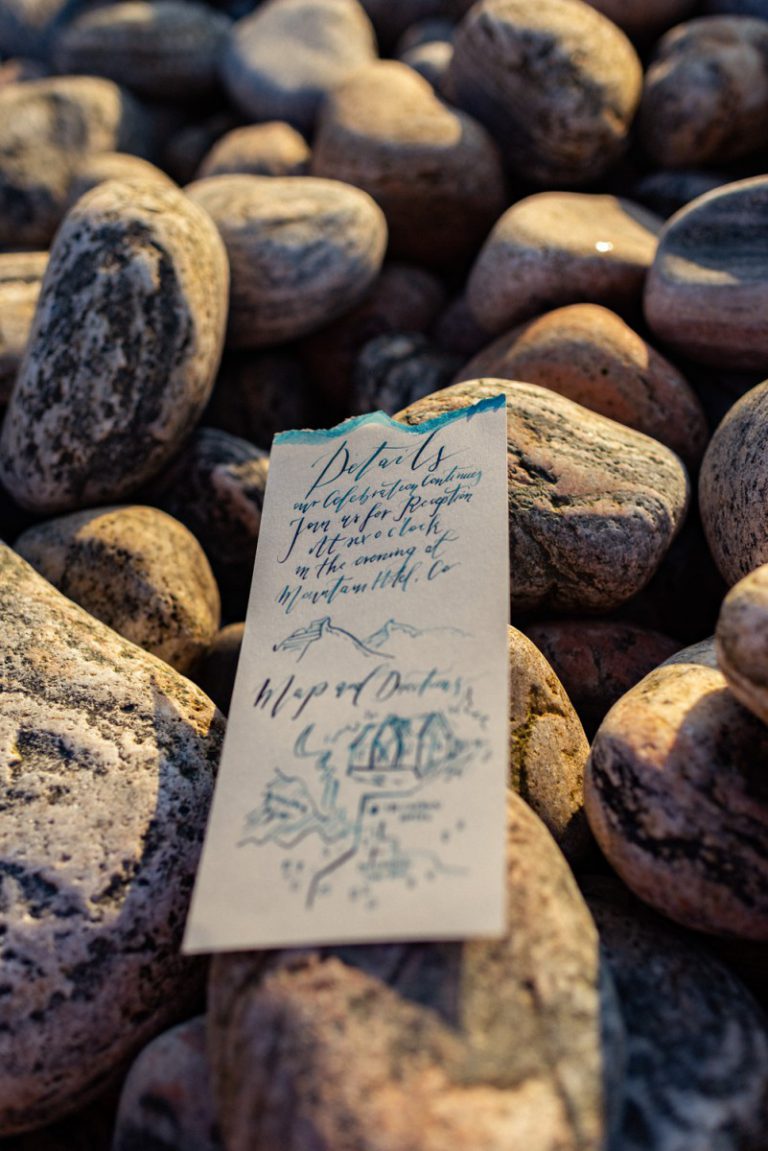 Details
our Celebration Continues
Join us for Reception
At six o clock
in the evening at
Mountain Hotel, Co
Map and Directions